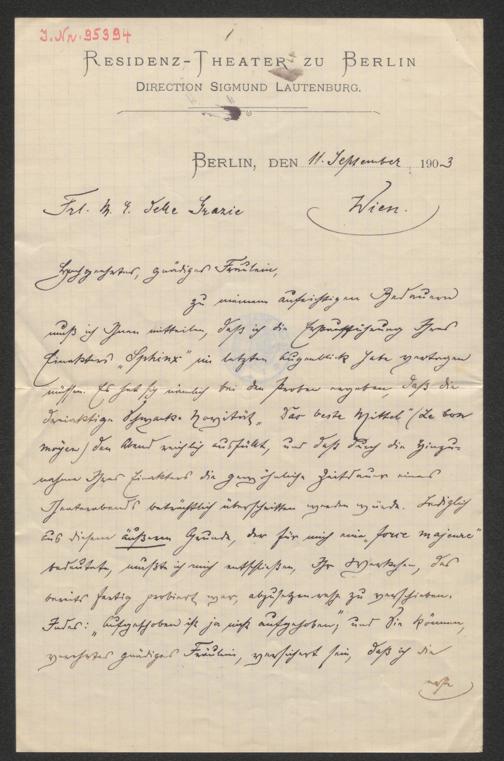 J.Nr. 95394
RESIDENZ-THEATER ZU BERLIN
DIRECTION SIGMUND LAUTENBURG.
BERLIN, DEN 11. September 1903
Frl. M. E. delle Grazie
Wien.
Hochgeehrtes, gnädiges Fräulein,
zu meinem aufrichtigen Bedauern
muß ich Ihnen mitteilen, daß ich die Erstaufführung Ihres
Einakters „Sphinx" im letzten Augenblick habe vertagen
müssen. Es hat sich nämlich bei den Proben ergeben, daß die
dreiaktige Schwank-Novität „Das beste Mittel" (Le bon
moyen) den Abend reichlich ausfüllt, und daß durch die Hinzu-
nahme Ihres Einakters die gewöhnliche Zeitdauer eines
Theaterabends beträchtlich überschritten werden würde. Lediglich
aus diesem äußeren Grunde, der für mich eine „force majeure"
bedeutete, mußte ich mich entschließen, Ihr Werkchen, das
bereits fertig probiert war, abzusetzen resp. zu verschieben.
Indes: „Aufgeschoben ist ja nicht aufgehoben", und Sie können,
verehrtes gnädiges Fräulein, versichert sein, daß ich die
erste